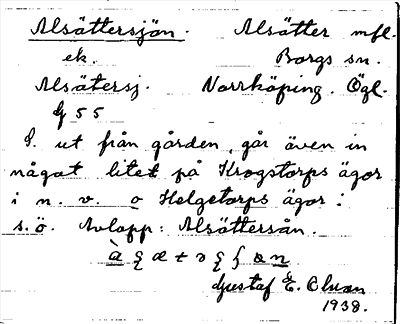 Alsättersjön. Alsätter mfl.
ek. Borgs sn.
Alsätersj. Norrköping. Ögl.
G 55
S. ut från gården, går även in
något litet på Krogstorps ägor
i n. v. o Helgetorps ägor i
s.ö. Avlopp: Alsättersån.
Gustaf E.
1938.